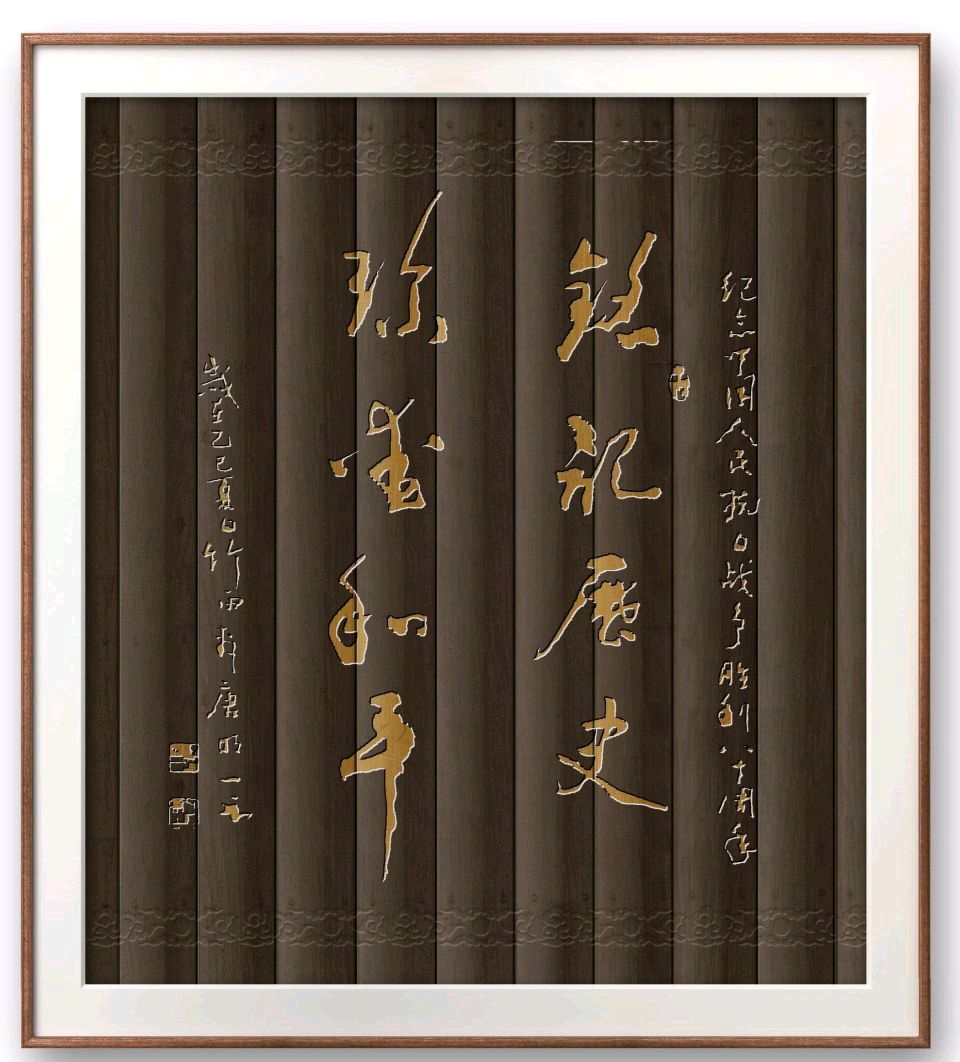 纪念中国人民抗日战争胜利八十周年
铭记历史
珍爱和平
岁在乙巳夏日竹雨轩唐明一书